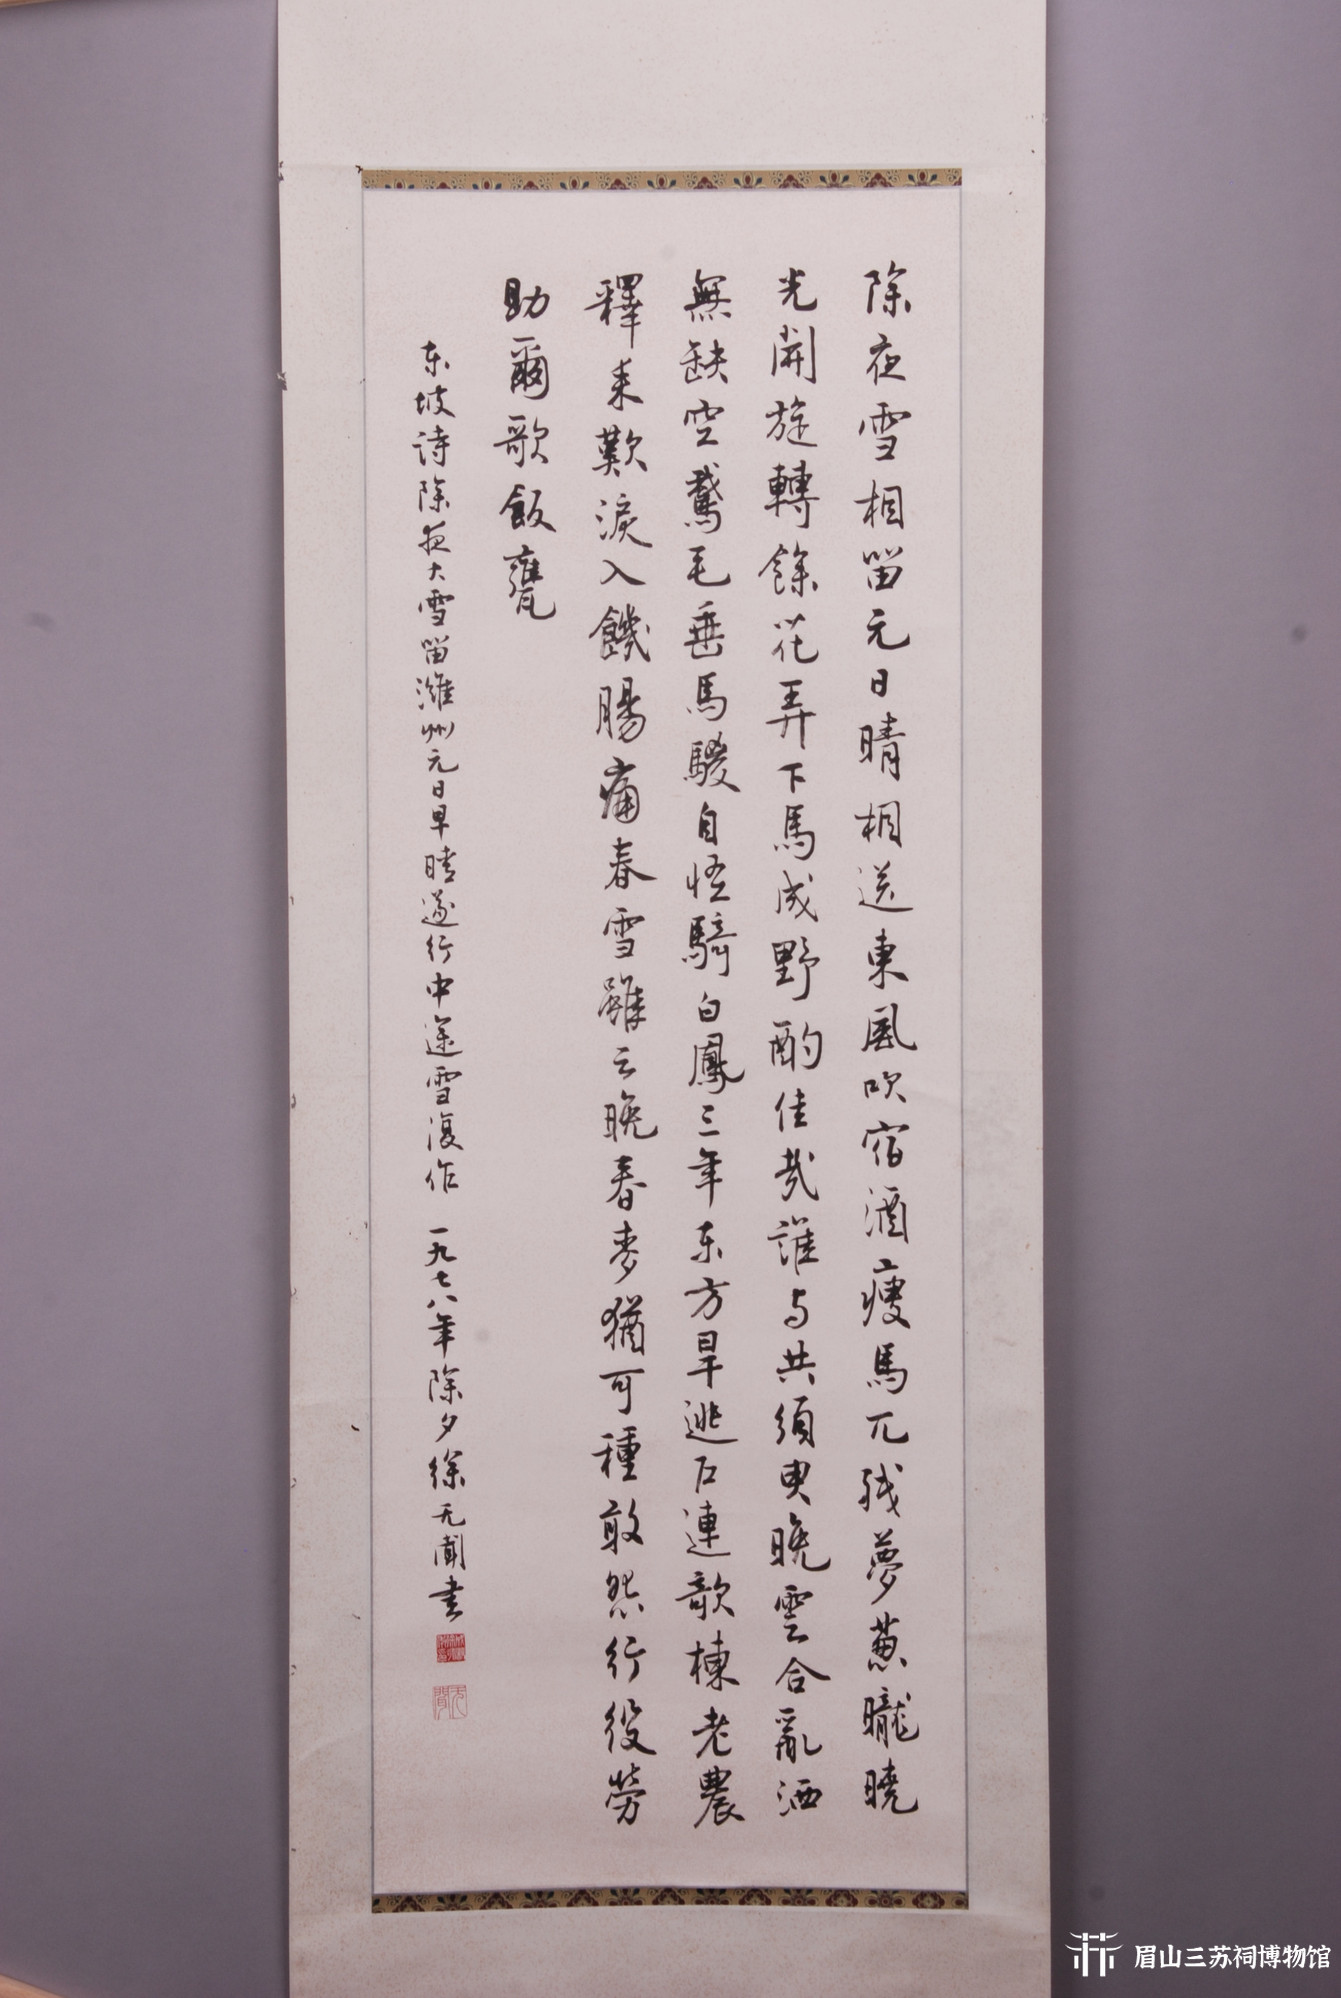 除夜雪相留元日晴相送東風吹宿酒瘦馬兀残夢葱曨曉
光開旋轉餘花弄下馬成野酌佳哉誰与共須臾晚雲合亂洒
無缺空鵞毛垂馬騣自怪騎白鳳三年东方旱逃户連欹棟老農
釋耒歎淚入饑腸痛春雪雖云晚春麥猶可種敢怨行役勞
助爾歌飯甕
东坡诗除夜大雪留濰州元日早晴遂行中途雪復作 一九七八年除夕徐无聞书
眉山三苏祠博物馆